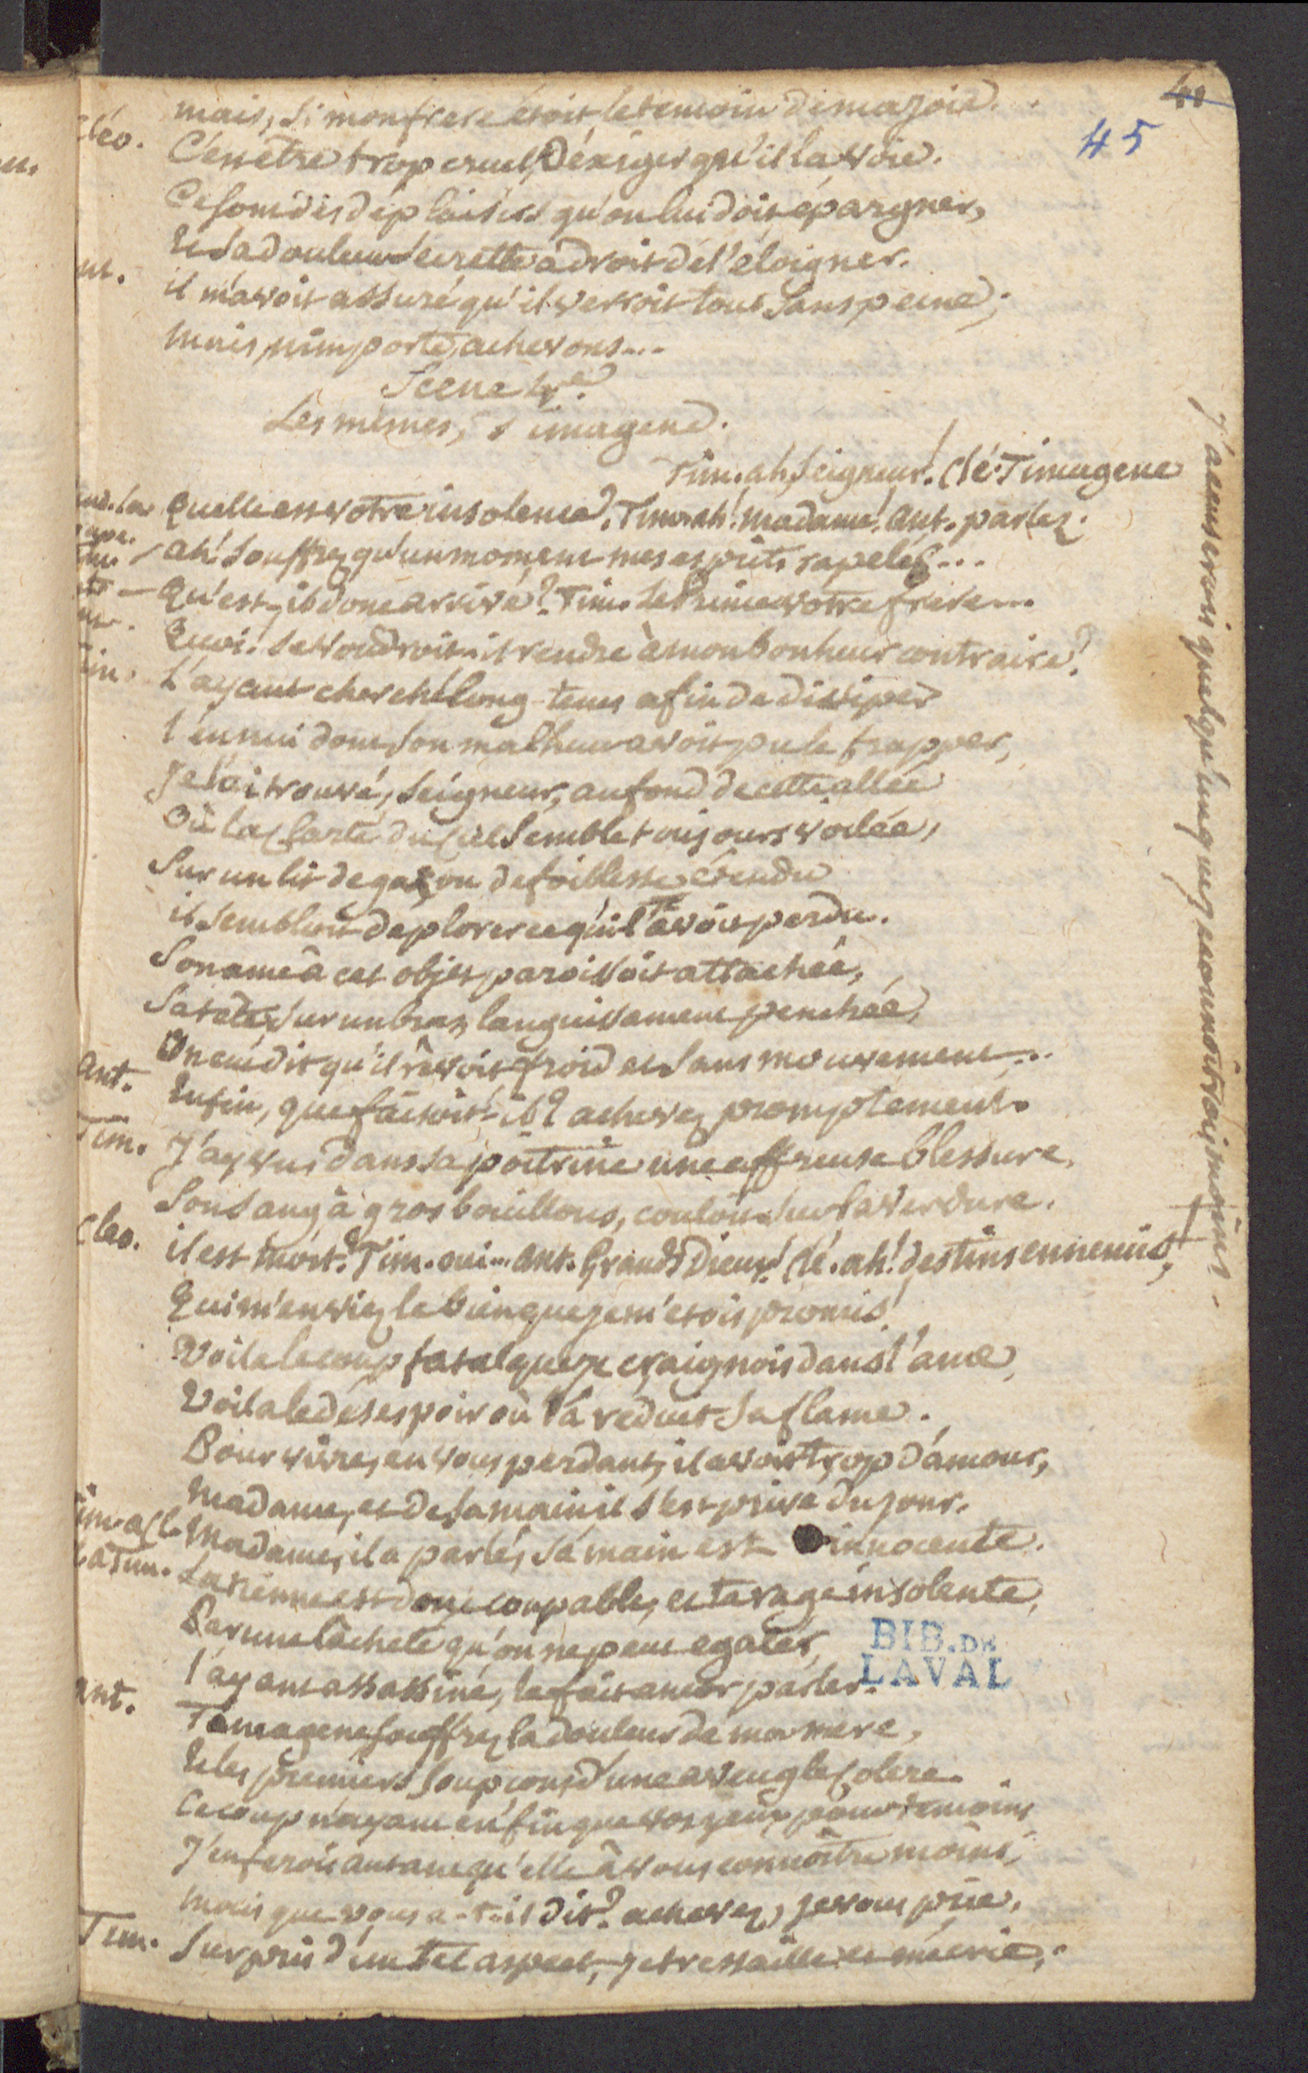 41
45
mais, si mon frere étoit le temoin de ma joie...
Cléo. C'en être trop cruel, d'éxiger qu'il la voie.
Ce sont des déplaisirs qu'on lui doit épargner,
Et sa douleur secrette a droit de l'eloigner.
nt. il m'avoit assuré qu'il verroit tout sans peine;
mais, n'importe, achevons...
Scene 4.e
Les mêmes, Timagene.
Tim. ah, Seigneur! Clé. Timagene
Quelle est votre insolence? Tim. ah! madame! Ant. parlez.
ah! souffrez qu'un moment mes esprits rapelés...
Qu'est-il donc arrivé? Tim. Le Prince votre frere...
Quoi! se voudroit-il rendre à mon bonheur contraire?
Tim. L'ayant cherché long-tems afin de dissiper
l'ennui dont son malheur avoit pu le frapper,
Je l'ai trouvé, Seigneur, au fond de cette allée
Où la clarté du Ciel semble toujours voilée,
Sur un lit de gazon de foiblesse étendu
il sembloit déplorer ce qu'il avoit perdu.
Son ame à cet objet paroissoit attachée,
Sa tête sur un bras languissament penchée,
On eut dit qu'il rêvoit froid et sans mouvement...
Ant. Enfin, que faisoit-il? achevez promptement.
Tim. J'ay vu dans sa poitrine une affreuse blessure,
Son sang à gros bouillons, couloit sur la verdure.
Cleo. il est mort? Tim. oui... Ant. Grands Dieux! Clé. ah! destins ennemis,
Qui m'enviez le bien que je m'etois promis!
Voila le coup fatal que je craignois dans l'ame,
Voila le désespoir où l'a reduit sa flame.
Pour vivre, en vous perdant, il avoit trop d'amour,
Madame, et de sa main il s'est privé du jour.
Tim. a Cl. Madame, il a parlé, sa main est innocente.
Cl. a Tim. La tienne est donc coupable, et ta rage insolente,
Par une lâcheté qu'on ne peut egaler,
l'ayant assassiné, le fait encor parler.
Ant. Timagene souffrez la douleur de ma mere,
Et les premiers soupçons d'une aveugle colere.
Ce coup n'ayant enfin que vos yeux pour temoins
J'en ferois autant qu'elle à vous connoître moins,
Mais que vous a-t-il dit? achevez, je vous prie.
Tim. Surpris d'un tel aspect, je tressaille et m'écrie,
J'accuserois quelqu'un que je connoîtrois moins.
BIB. DE
LAVAL